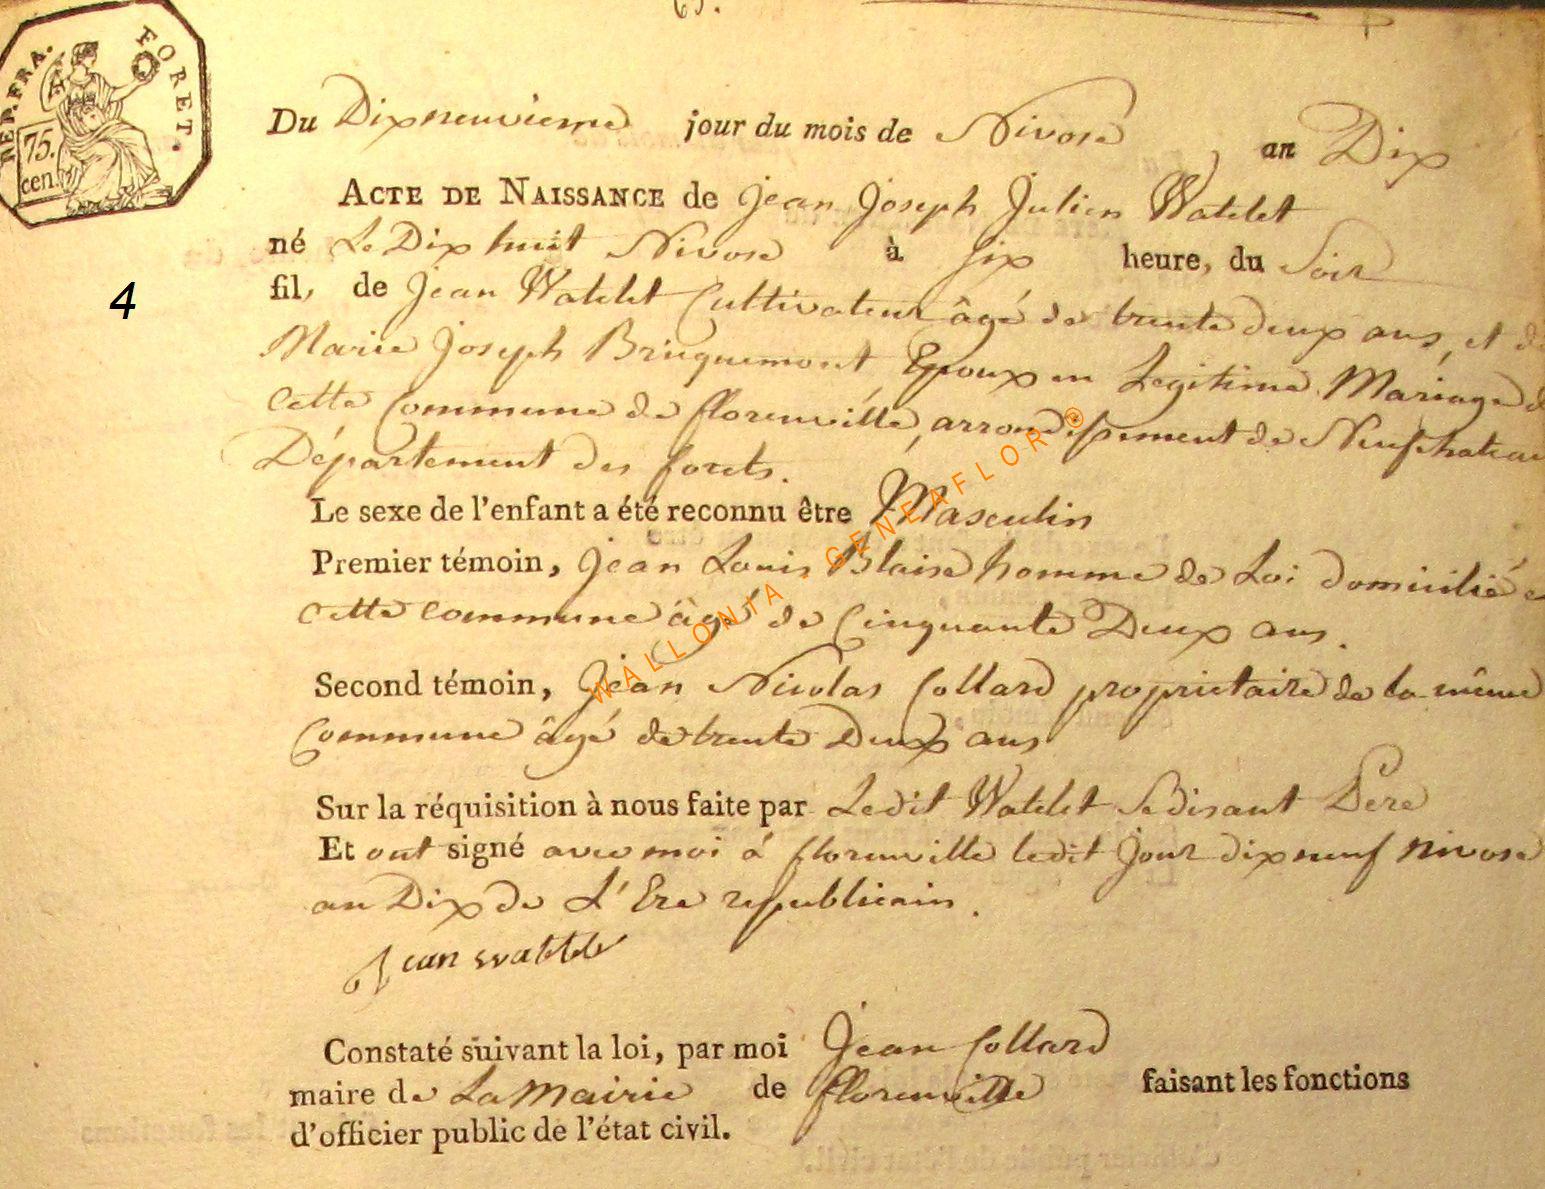 REP. FRA. FORET.
75. cen.
Du Dixneuvieme jour du mois de Nivose an Dix
ACTE DE NAISSANCE de Jean Joseph Julien Watelet
né Le Dix huit Nivose à six heure, du Soir
4
fil, de Jean Watelet Cultivateur âgé de trente deux ans, et de
Marie Joseph Bricquemont Epoux en Legitime Mariage de
cette Commune de florenville, arrondissement de Neufchateau
Département des forets.
Le sexe de l'enfant a été reconnu être Masculin
Premier témoin, Jean Louis Blaise homme de Loi domicilié e
cette commune âgé de Cinquante Deux ans.
Second témoin, Jean Nicolas Collard proprietaire de la même
Commune âgé de trente Deux ans
Sur la réquisition à nous faite par Ledit Watelet Se disant Pere
Et ont signé avec moi á florenville ledit Jour dix neuf nivose
an Dix de L'Ere republicain.
Jean
Constaté suivant la loi, par moi Jean Collard
maire de La Mairie de florenville faisant les fonctions
d'officier public de l'état civil.
WALLONIA - GENEAFLOR ©